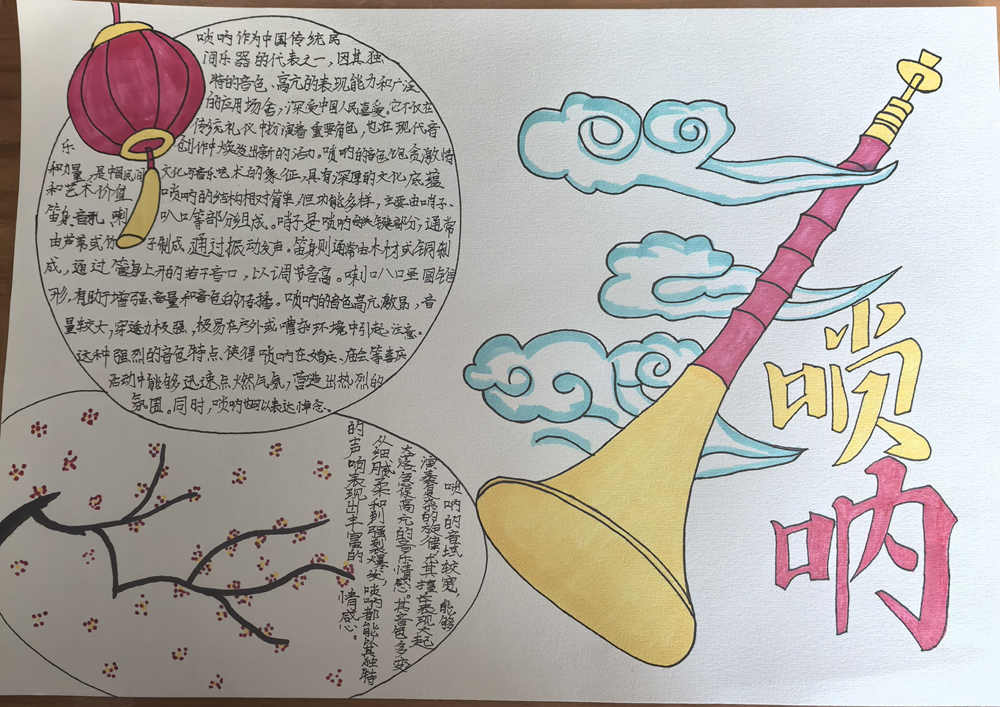 唢呐作为中国传统民
间乐器的代表之一,因其独
特的音色、高亢的表现能力和广泛
的应用场合,深受中国人民喜爱。它不仅在
传统礼仪中扮演着重要角色,也在现代音
乐 创作中焕发出新的活力。唢呐的音色饱含激情
和力量,是中国民间文化与音乐艺术的象征,具有深厚的文化底蕴
和艺术价值 唢呐的结构相对简单,但功能多样,主要由哨子、
笛身、音孔、喇叭口等部分组成。哨子是唢呐的关键部分,通常
由芦苇或竹子制成,通过振动发声。笛身则通常由木材或铜制
成,通过笛身上开的若干音口,以调节音高。喇叭口呈圆锥
形,有助于增强音量和音色的传播。唢呐的音色高亢激昂,音
量较大,穿透力极强,极易在户外或嘈杂环境中引起注意。
这种强烈的音色特点,使得唢呐在婚庆、庙会等喜庆
活动中能够迅速点燃气氛,营造出热烈的
氛围。同时,唢呐也可以表达悼念。
唢呐的音域较宽,能够
演奏复杂的旋律,尤其擅长表现大起
大落、急促高亢的音乐情感。其音色多变
从细腻柔和到强烈爆发,唢呐都能以其独特
的声响表现出丰富的情感。
唢呐